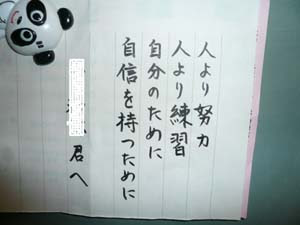 人より努力
人より練習
自分のために
自信を持つために
君へ